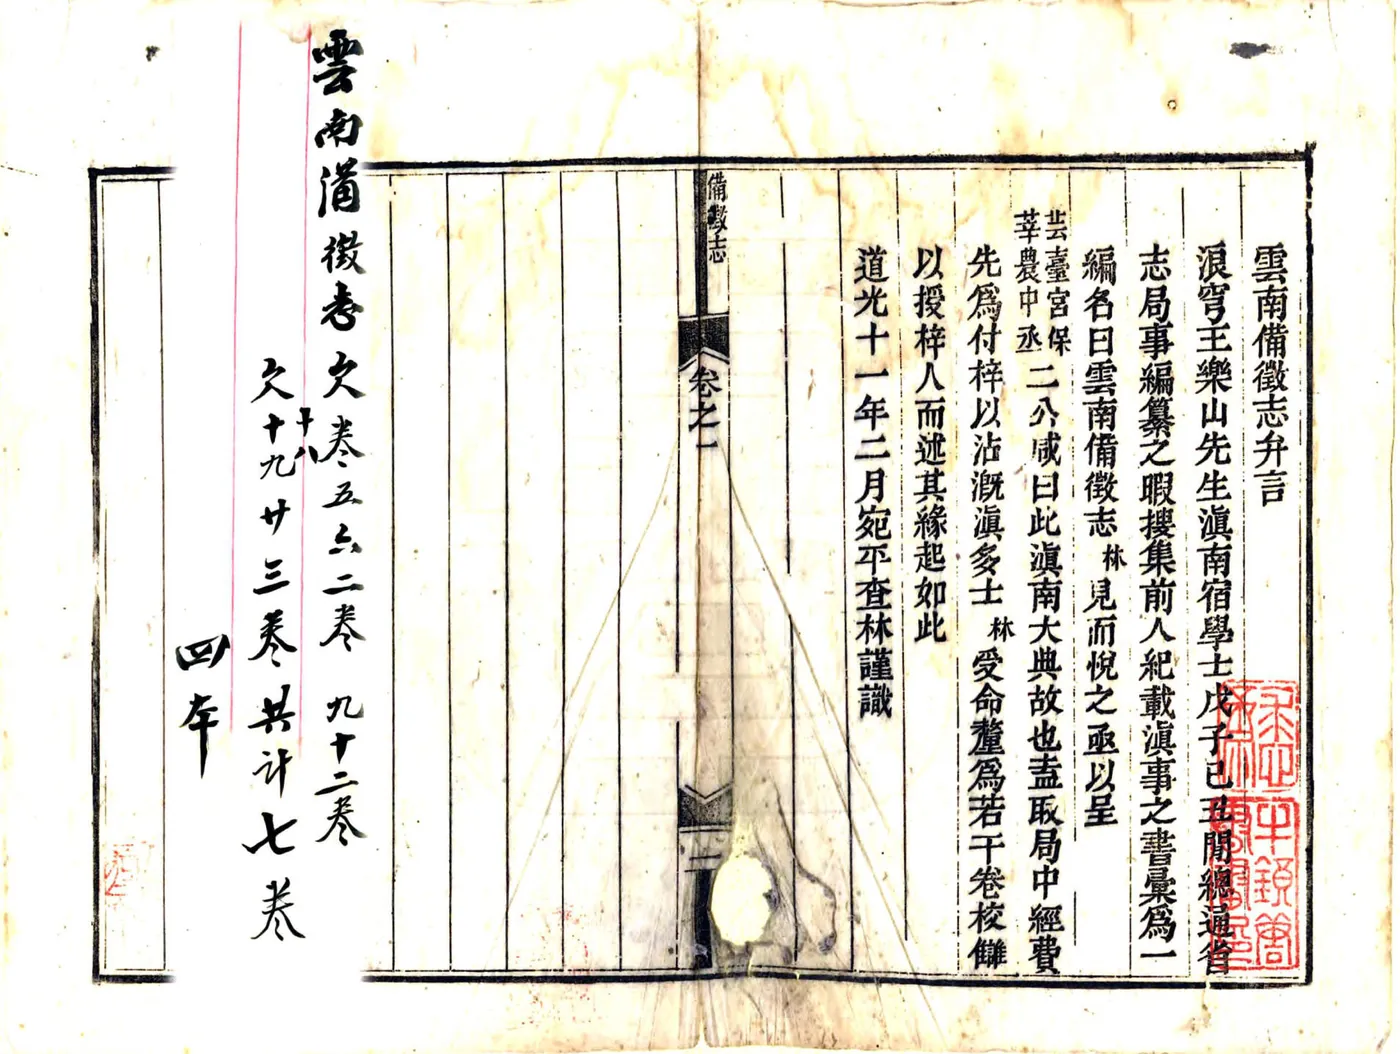 雲南備徵志弁言
浪穹王樂山先生滇南宿學士戊子己丑閒總通省
志局事編纂之暇搜集前人紀載滇事之書彙爲一
編名曰雲南備徵志林見而悅之亟以呈
芸臺宮保
莘農中丞
二公咸曰此滇南大典故也盍取局中經費
先爲付梓以沾溉滇多士林受命釐爲若干卷校讎
以授梓人而述其緣起如此
道光十一年二月宛平查林謹識
備徵志
卷之一
二
雲南備徵志欠卷五六二卷 九十二卷
十八
欠十九廿三卷共計七卷
四本